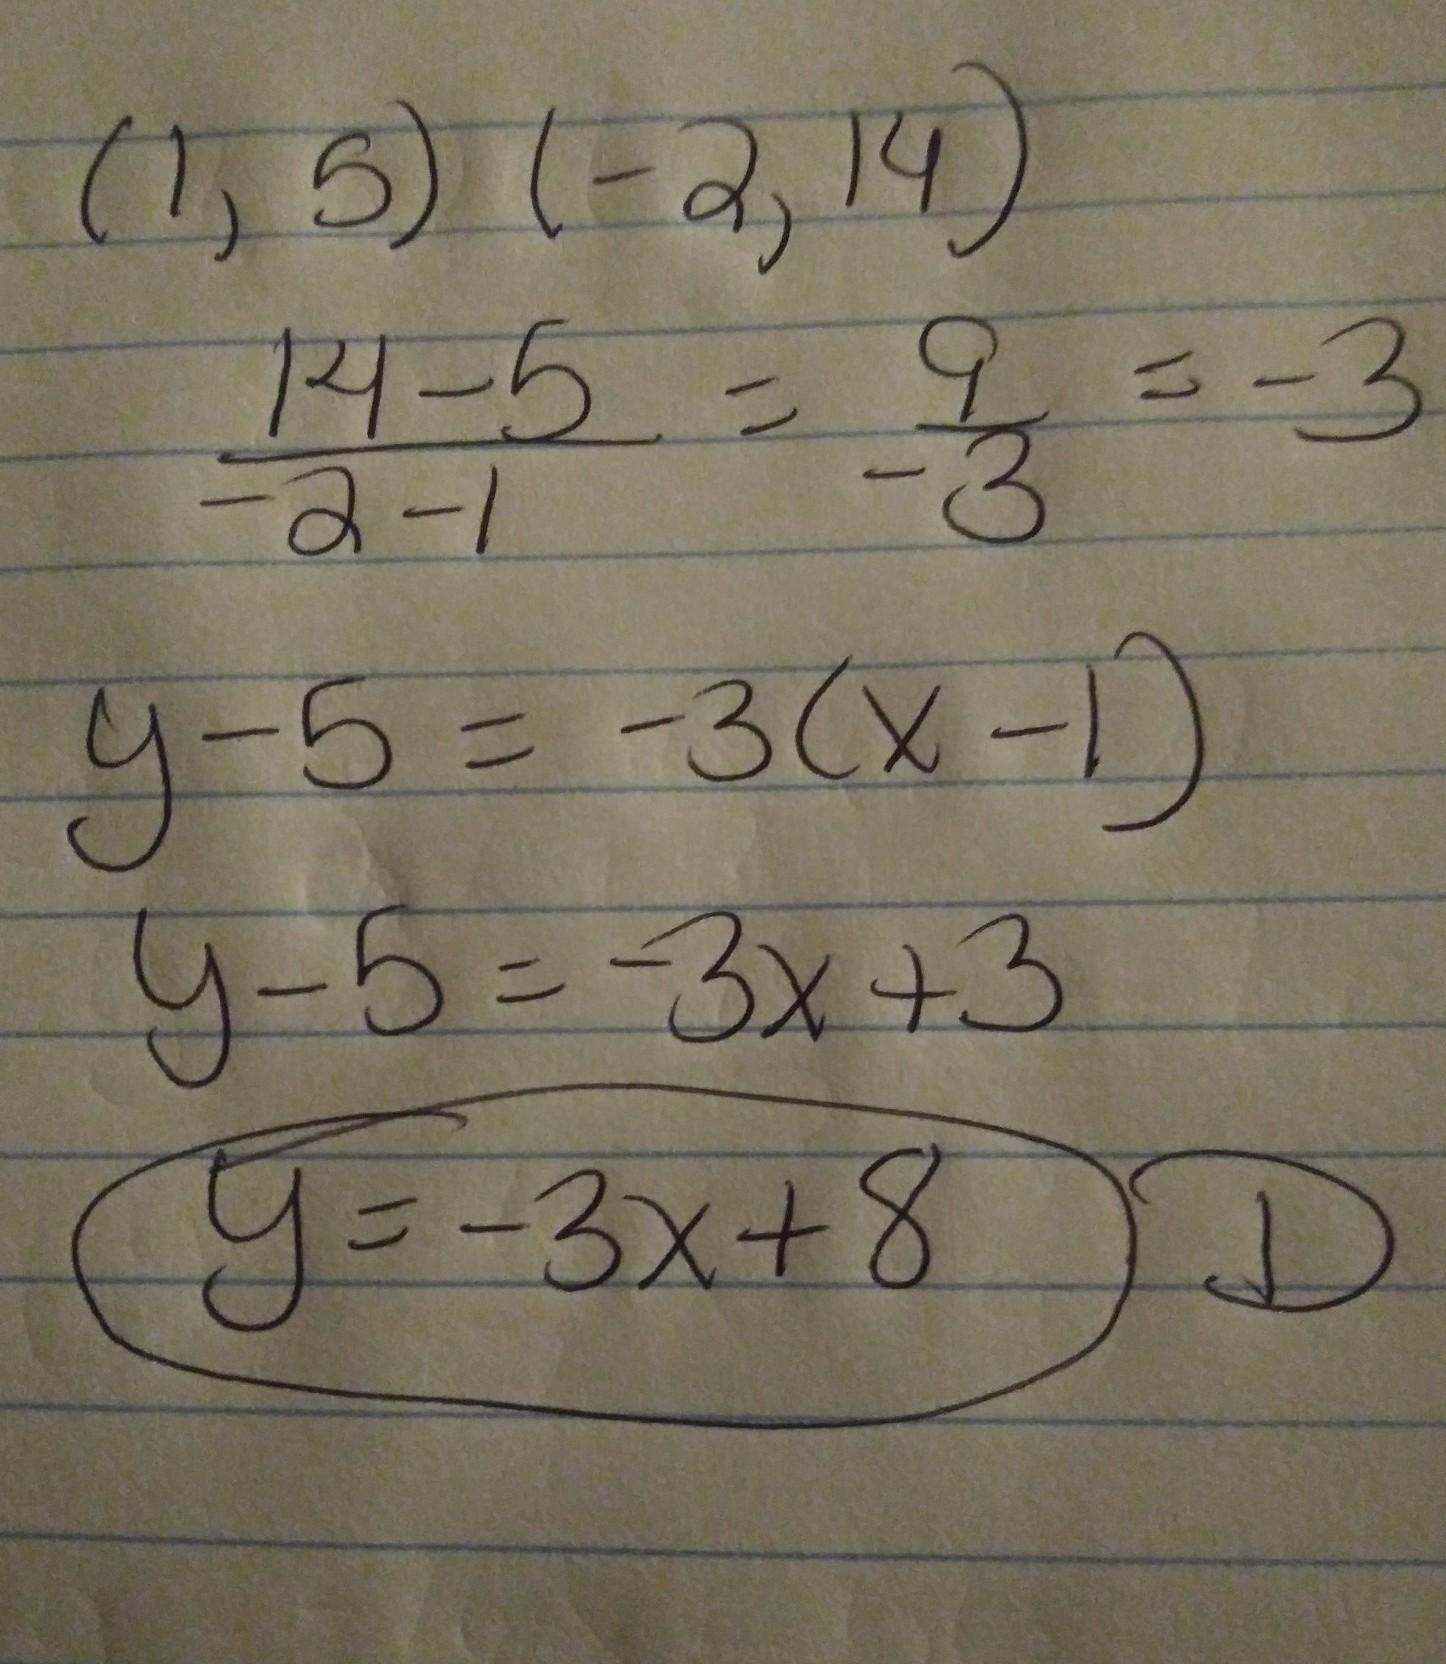 (1, 5) (-2, 14)
14-5 / -2-1 = 9 / -3 = -3
y-5 = -3(x-1)
y-5 = -3x+3
y = -3x+8 D